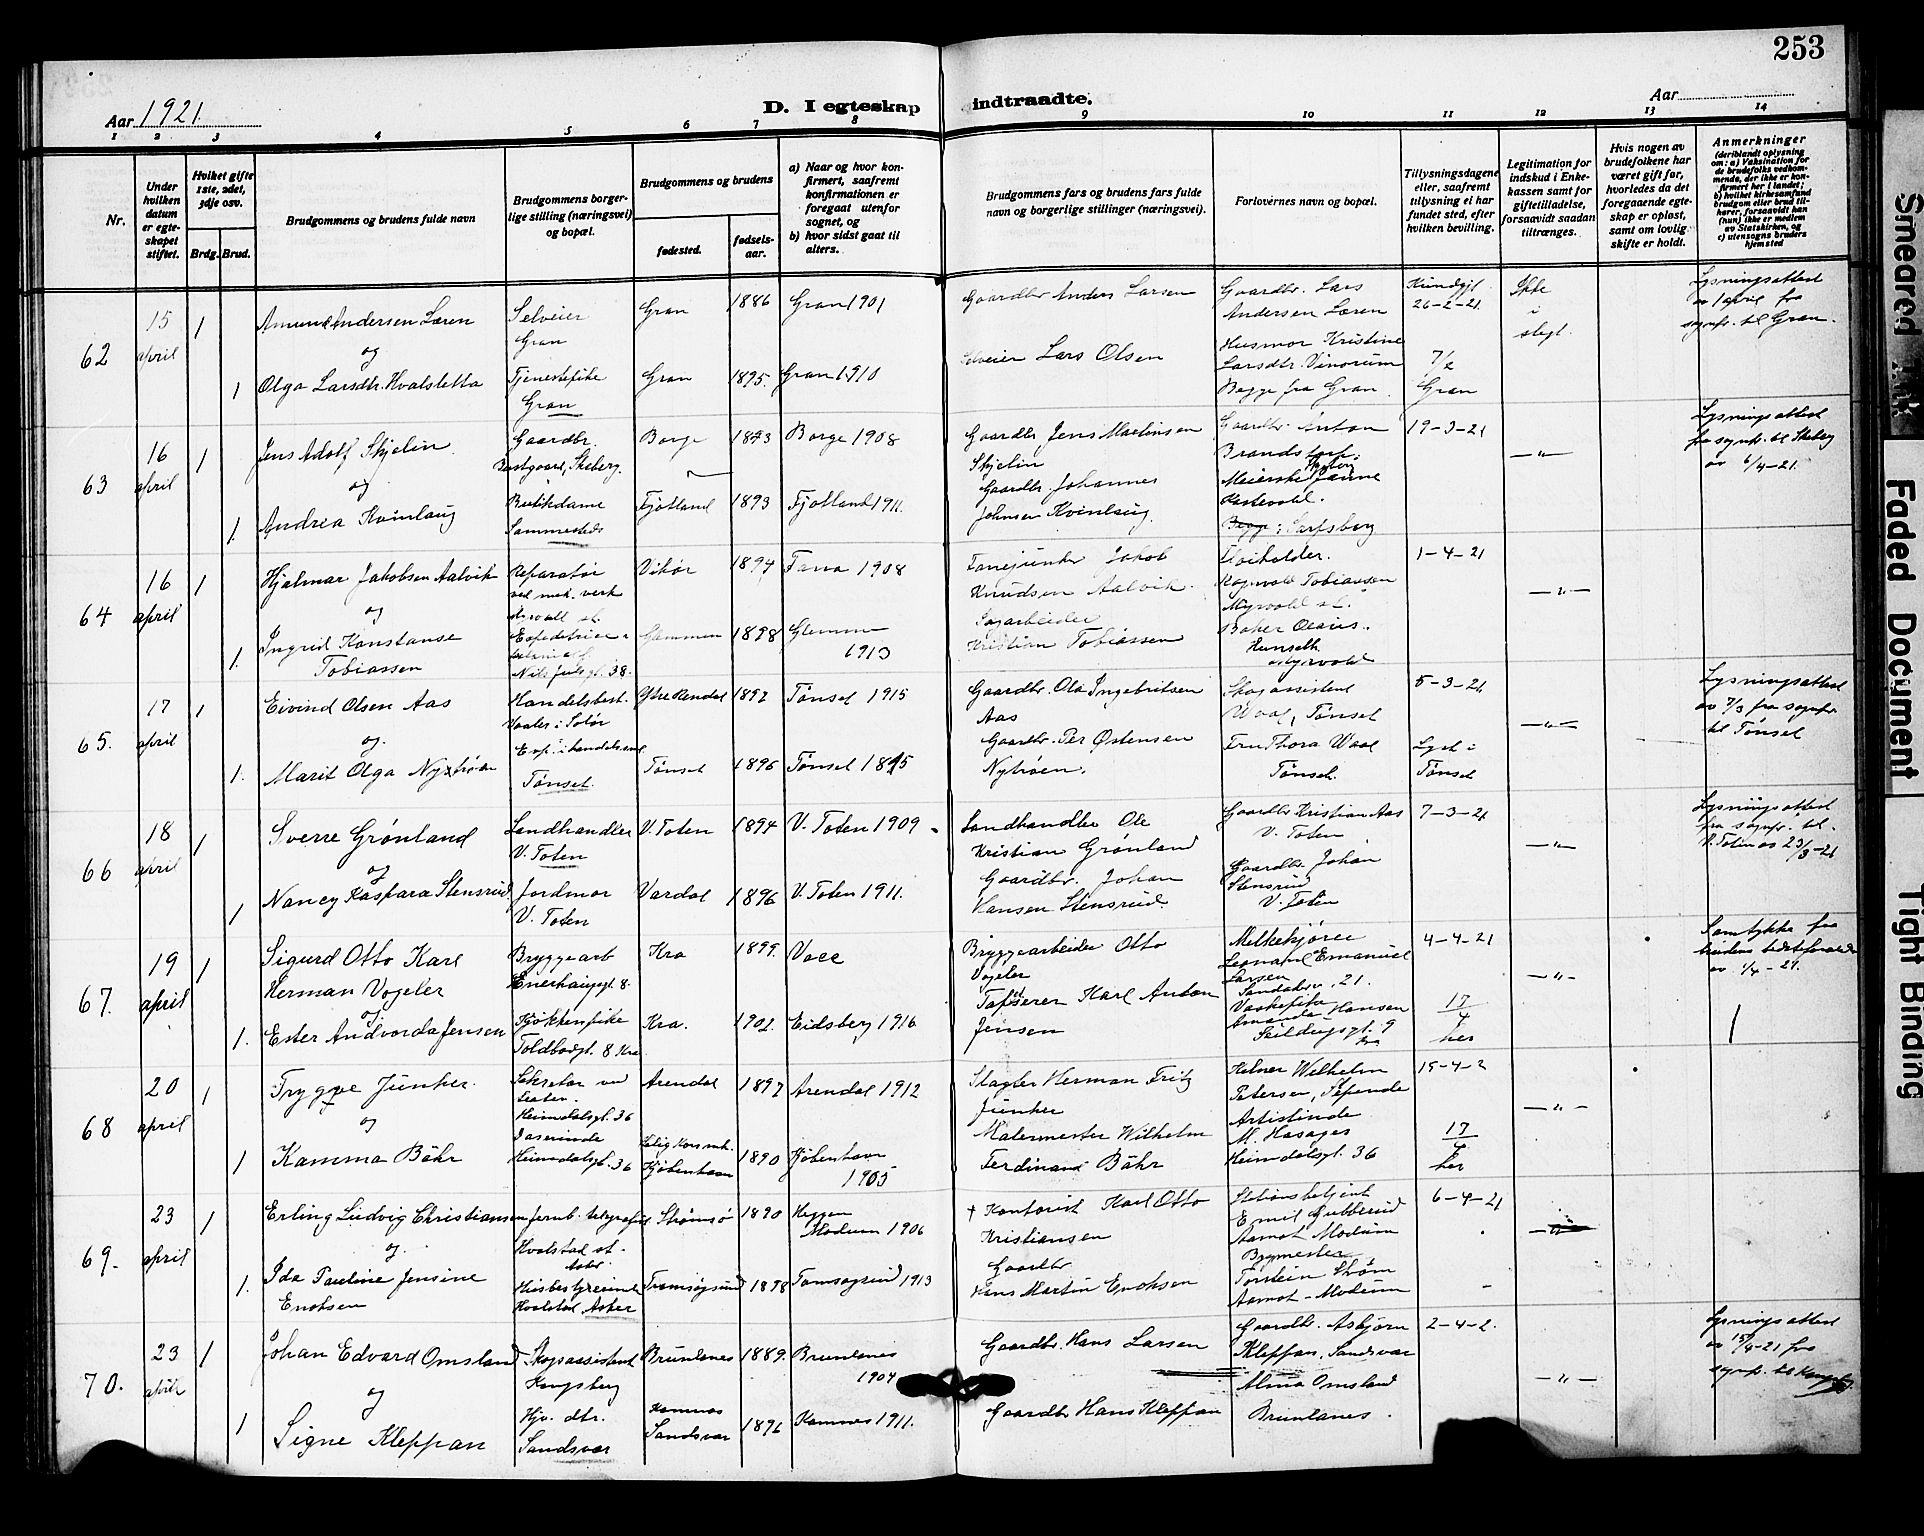 253
Aar 1921.
D. I egteskap indtraadte.
Aar
1 2 3 4 5 6 7 8 9 10 11 12 13 14
Nr.
Under hvilken datum er egteskapet stiftet.
Hvilket gifte 1ste, 2det, 3dje osv.
Brdg. Brud.
Brudgommens og brudens fulde navn
Brudgommens borgerlige stilling (næringsvei) og bopæl.
Brudgommens og brudens
fødested.
fødselsaar.
a) Naar og hvor konfirmert, saafremt konfirmationen er foregaat utenfor sognet, og
b) hvor sidst gaat til alters.
Brudgommens fars og brudens fars fulde navn og borgerlige stillinger (næringsvei).
Forlovernes navn og bopæl.
Tillysningsdagene eller, saafremt tillysning ei har fundet sted, efter hvilken bevilling.
Legitimation for indskud i Enkekassen samt for giftetilladelse, forsaavidt saadan tiltrænges.
Hvis nogen av brudefolkene har været gift før, hvorledes da det foregaaende egteskap er opløst, samt om lovlig skifte er holdt.
Anmerkninger
(deriblandt oplysning om: a) Vaksination for de brudefolks vedkommende, der ikke er konfirmert her i landet; b) hvilket kirkesamfund brudgom eller brud tilhører, forsaavidt han (hun) ikke er medlem av Statskirken, og c) utensogns bruders hjemsted
62
15 april
1
Amund Andersen Læren
og
1
Olga Larsdtr. Hvalsletta
Selveier
Gran
Tjenestepike
Gran
Gran 1886 Gran 1901
Gran 1895. Gran 1910
Gaardbr Anders Larsen
Selveier Lars Olsen
Gaardbr. Lars
Andersen Læren
Husmor Kristine
Larsdtr. Vinorum
Begge fra Gran
26-2-21
Gran
Ikke
i
slegt.
Lysningsattest
av 1 april fra
sognpr. til Gran.
63
16 april
1
Jens Adolf Skjelin
og
1.
Andrea Kvinlaug
Gaardbr.
Skeberg.
Butikdame
Sammesteds
Borge 1893 Borge 1908
Fjotland 1893 Fjotland 1911.
Gaardbr Jens Martinsen
Skjelin
Gaardbr. Johannes
Johnsen Kvinlaug.
Gaardbr. Anton
Brandstorp.
Begge: Sarpsborg
19-3-21
— " —
Lysningsattest
fra sognpr. til Skeberg
av 6/4-21.
64
16 april
1
Hjalmar Jakobsen Aalvik
og
1.
Ingrid Konstanse
Tobiassen
Reparatør
ved mek. verk
Nils Juelsgt. 38.
Vikør 1894 Fana 1908
1898 Glemmen
1913
Fanejunker Jakob
Knudsen Aalvik.
Sagarbeider
Kristian Tobiassen
Ragnvald Tobiassen
Baker Olaus.
1-4-21
— " —
65.
17 april
1
Eivind Olsen Aas
og.
1.
Marit Olga Nytrøen
Handelsbest.
Vaaler i Solør
Exp. i handelsm
Tønset.
Ytre Rendal 1892 Tønset 1915
Tønset 1896 Tønset 1895
Gaardbr. Ola Ingebritsen
Aas
Gaardbr. Per Østensen
Nytrøen.
Skogassistent
Waal, Tønset
Fru Thora Waal
Tønset.
5-3-21
Lyst i
Tønset
— " —
Lysningsattest
av 7/3 fra sognpr
til Tønset
66
18 april
1
Sverre Grønland
og
1
Nancy Kaspara Stensrud
Landhandler
V. Toten
Jordmor
V. Toten
V. Toten 1894 V. Toten 1909
Vardal 1896 V. Toten 1911.
Landhandler Ole
Kristian Grønland
Gaardbr. Johan
Hansen Stensrud.
Gaardbr Kristian Aas
V. Toten
Gaardbr. Johan
Stensrud
V. Toten
7-3-21
— " —
Lysningsattest
fra sognpr. til
V. Toten av 23/3-21
67.
19 april
1
Sigurd Otto Karl
Herman Vogeler
og
1.
Ester Andvorda Jensen
Bryggearb
Enerhaugsgt. 8.
Kjøkkenpike
Toldbodgt. 8 Kra
Kra 1899.
Kra. 1902. Eidsberg 1916
Bryggearbeider Otto
Vogeler
Tapserer Karl Anton
Jensen
Melkekjører
Leonard Emanuel
Larsen
21.
Vaskepike
Amanda Hansen
Seildugsgt. 9
Kra
4-4-21
17/4
her
— " —
Samtykke fra
av 1/4-21.
68
20 april
1
Trygve Junker.
og
1
Kamma Bähr
Sekretær ved
teater.
Heimdalsgt. 36
Heimdalsgt. 36
Arendal 1897 Arendal 1912
Kjøbenhavn 1890 Kjøbenhavn
1905
Slagter Herman Fritz
Junker
Malermester Wilhelm
Ferdinand Bähr
Kelner Wilhelm
Petersen,
Artistinde
M. Hasager
Heimdalsgt. 36
15-4-2
17/4
her
— " —
69.
23 april
1
Erling Ludvig Christiansen
og.
1.
Ida Pauline Jensine
Enoksen
Jernb. telegrafist
Hvalstad st.
Asker
Husbestyrerinde
Hvalstad Asker
Strømsø 1890 Heggen
Modum 1906
1898 1913
† Kontorist Karl Otto
Kristiansen
Gaardbr
Hans Martin Enoksen
Stationsbetjent
Emil Gubberud
Aamot Modum
Bygmester
Torstein Strøm
Aamot - Modum
6-4-21
— " —
70.
23 april
1
Johan Edvard Omsland
og
1
Signe Kleppan
Skogsassistent
Kongsberg
Hjv. dtr.
Sandsvær
Brunlanes 1889. Brunlanes
1904
Komnes
Sandsvær 1896 Komnes 1911.
Gaardbr. Hans Larsen
Gaardbr Hans Kleppan
Gaardbr. Asbjørn
Kleppan, Sandsvær
Alma Omsland
Brunlanes.
2-4-2.
— " —
Lysningsattest
av 15/4-21 fra
sognpr. til
Smeared Ink
Faded Document
Tight Binding